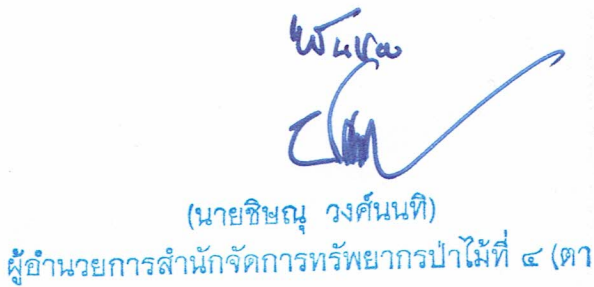 (นายชิษณุ วงศ์นนทิ)
ผู้อำนวยการสำนักจัดการทรัพยากรป่าไม้ที่ ๔ (ตา